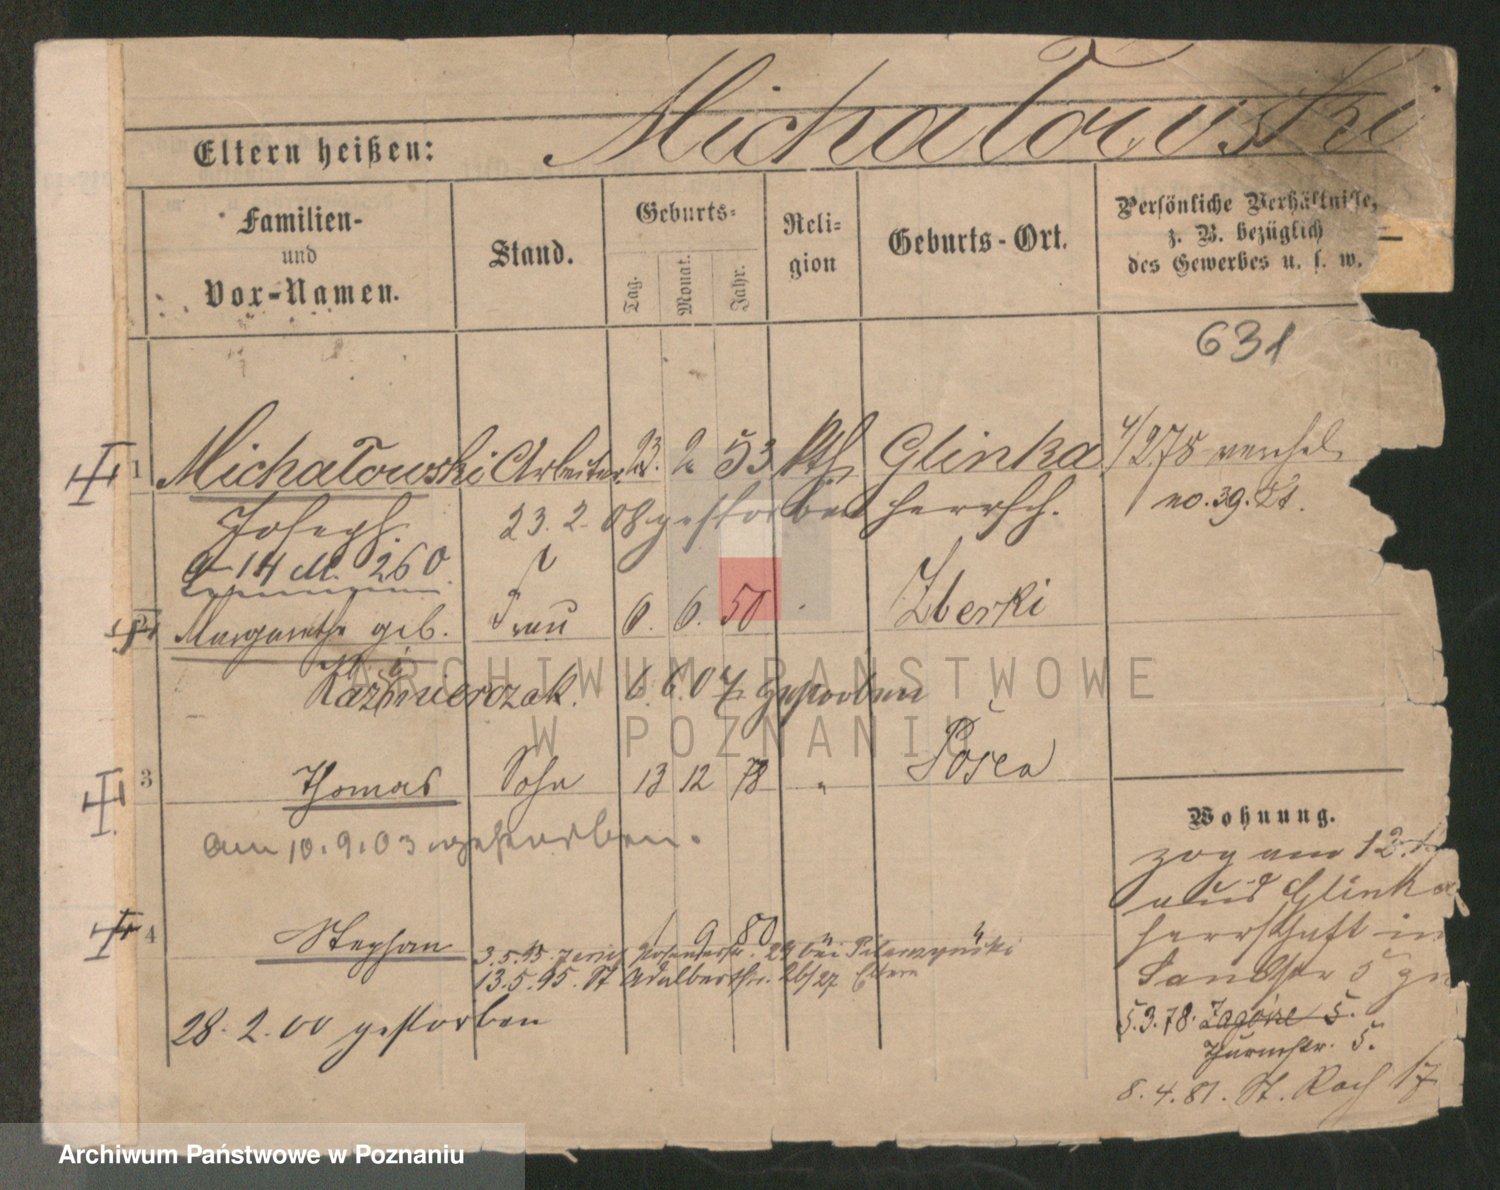 Michałowski
Eltern heißen:
Familien-
und
Vor-Namen.
Stand.
Geburts-
Tag.
Monat.
Jahr.
Reli-
gion
Geburts-Ort.
Persönliche Verhältnisse,
z. B. bezüglich
des Gewerbes u. s. w.
631
1 Michałowski Arbeiter 23. 2 53 kth Glinka
Joseph. herrsch.
4/275
no. 39.
23. 2. 08 gestorben
14 M. 260
2 Margarethe geb. Frau 6. 6. 50 Zberki
Kazmierczak. 6. 6. 07 gestorben
3 Thomas Sohn 13 12 78 " Posen
am 10. 9. 03 gestorben.
4 Stephan 1 9 80 "
3.5.95. 24 bei
13.5.95. St Adalbertstr. 26/27 Eltern
28. 2. 00 gestorben
Wohnung.
zog am 12.
aus Glinka
herrschaft in
Sandstr 5
5.3.78. Zagórze 5.
Thurmstr. 5.
8.4.81. St. Roch 17
ARCHIWUM PAŃSTWOWE
W POZNANIU
Archiwum Państwowe w Poznaniu